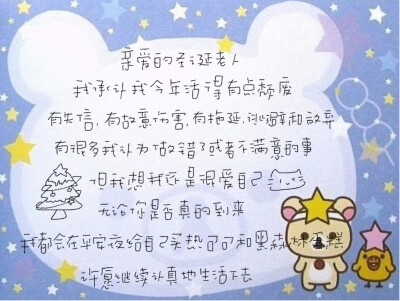 亲爱的圣诞老人
我承认我今年活得有点颓废
有失信,有故意伤害,有拖延、逃避和放弃
有很多我认为做错了或者不满意的事
但我想我还是很爱自己
无论你是否真的到来
我都会在平安夜给自己买热可可和黑森林蛋糕
许愿继续认真地生活下去